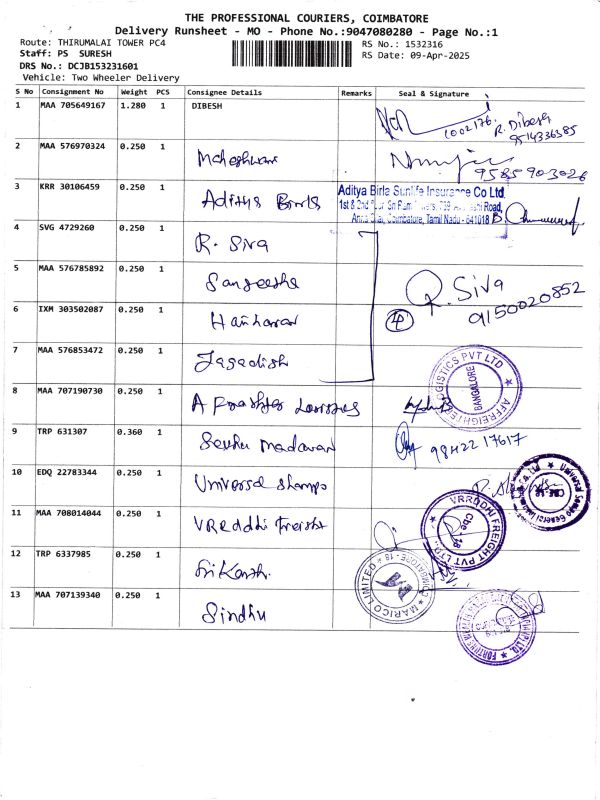 THE PROFESSIONAL COURIERS, COIMBATORE
Delivery Runsheet - MO - Phone No.:9047080280 - Page No.:1
Route: THIRUMALAI TOWER PC4
RS No.: 1532316
Staff: PS SURESH
RS Date: 09-Apr-2025
DRS No.: DCJB153231601
Vehicle: Two Wheeler Delivery
S No Consignment No Weight PCS Consignee Details Remarks Seal & Signature
1 MAA 705649167 1.280 1 DIBESH
1002176. R. Dibesh
9514336385
2 MAA 576970324 0.250 1 Maheshwari
9585903026
3 KRR 30106459 0.250 1 Aditya Birla
Aditya Birla Sunlife Insurance Co Ltd
Coimbatore, Tamil Nadu - 641018
4 SVG 4729260 0.250 1 R. Siva
5 MAA 576785892 0.250 1 Sangeetha
R. Siva
9150020852
6 IXM 303502087 0.250 1 Hariharan
7 MAA 576853472 0.250 1 Jagadish
BANGALORE
8 MAA 707190730 0.250 1
9 TRP 631307 0.360 1 Sethu madavan
9842217617
10 EDQ 22783344 0.250 1 Universal Shampo
11 MAA 708014044 0.250 1 VReddhi freight
VRRDDHI FREIGHT PVT LTD.
Cbe-18
12 TRP 6337985 0.250 1 Sri Kanth.
MARICO LIMITED
COIMBATORE - 18
13 MAA 707139340 0.250 1 Sindhu